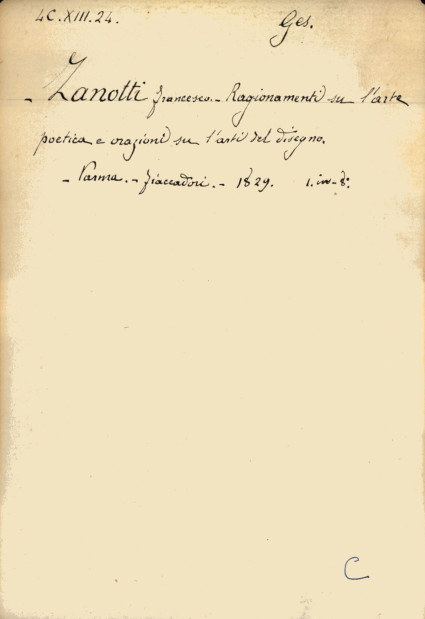 4C.XIII.24.
Ges.
- Zanotti Francesco. - Ragionamenti su l'arte
poetica e orazioni su l'arti del disegno.
- Parma. - Fiaccadori. - 1829. 1. in-8º
C